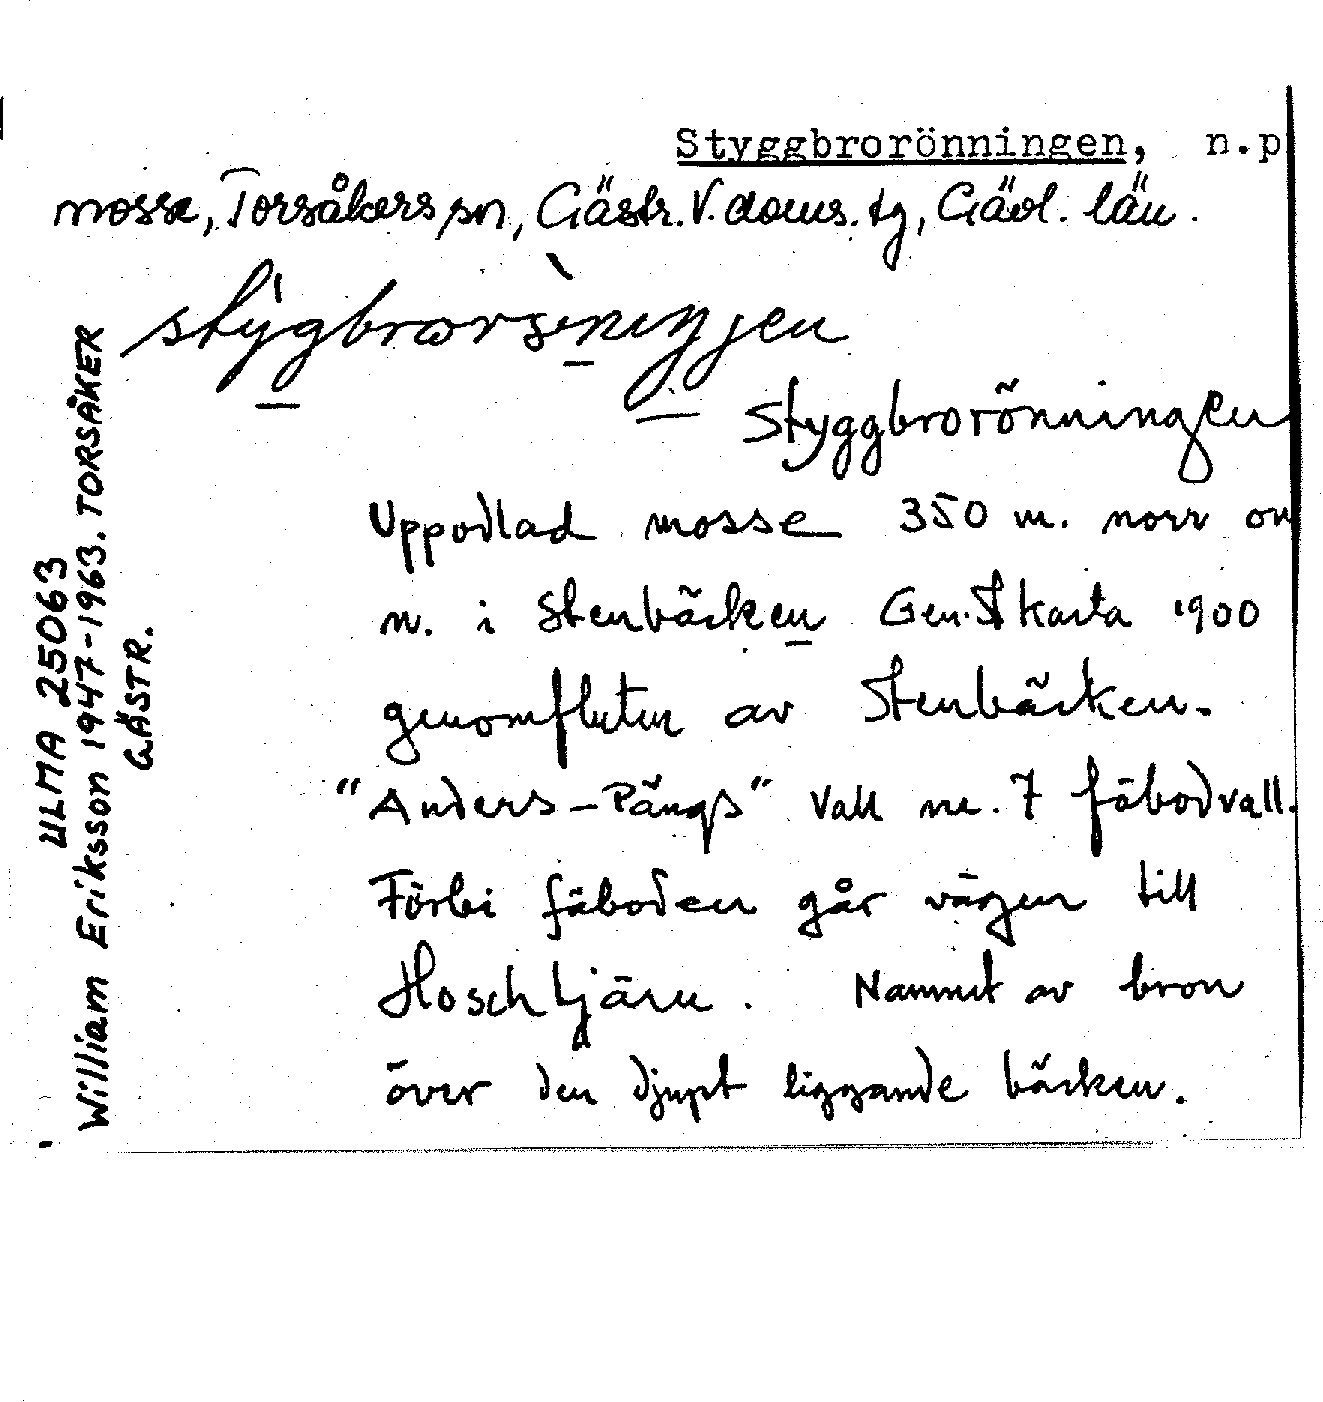 Styggbrorönningen, n.p
mosse, Torsåkers sn, Gästr. V. doms. tg, Gävl. län.
Styggbrorönningen
Uppodlad mosse 350 m. norr om
n. i Stenbäcken Gen.St karta 1900
genomfluten av Stenbäcken.
"Anders-Pängs" Vall nr. 7 fäbodvall.
Förbi fäboden går vägen till
Hoschtjärn. Namnet av bron
över den djupt liggande bäcken.
ULMA 25063
William Eriksson 1947-1963. TORSÅKER
GÄSTR.